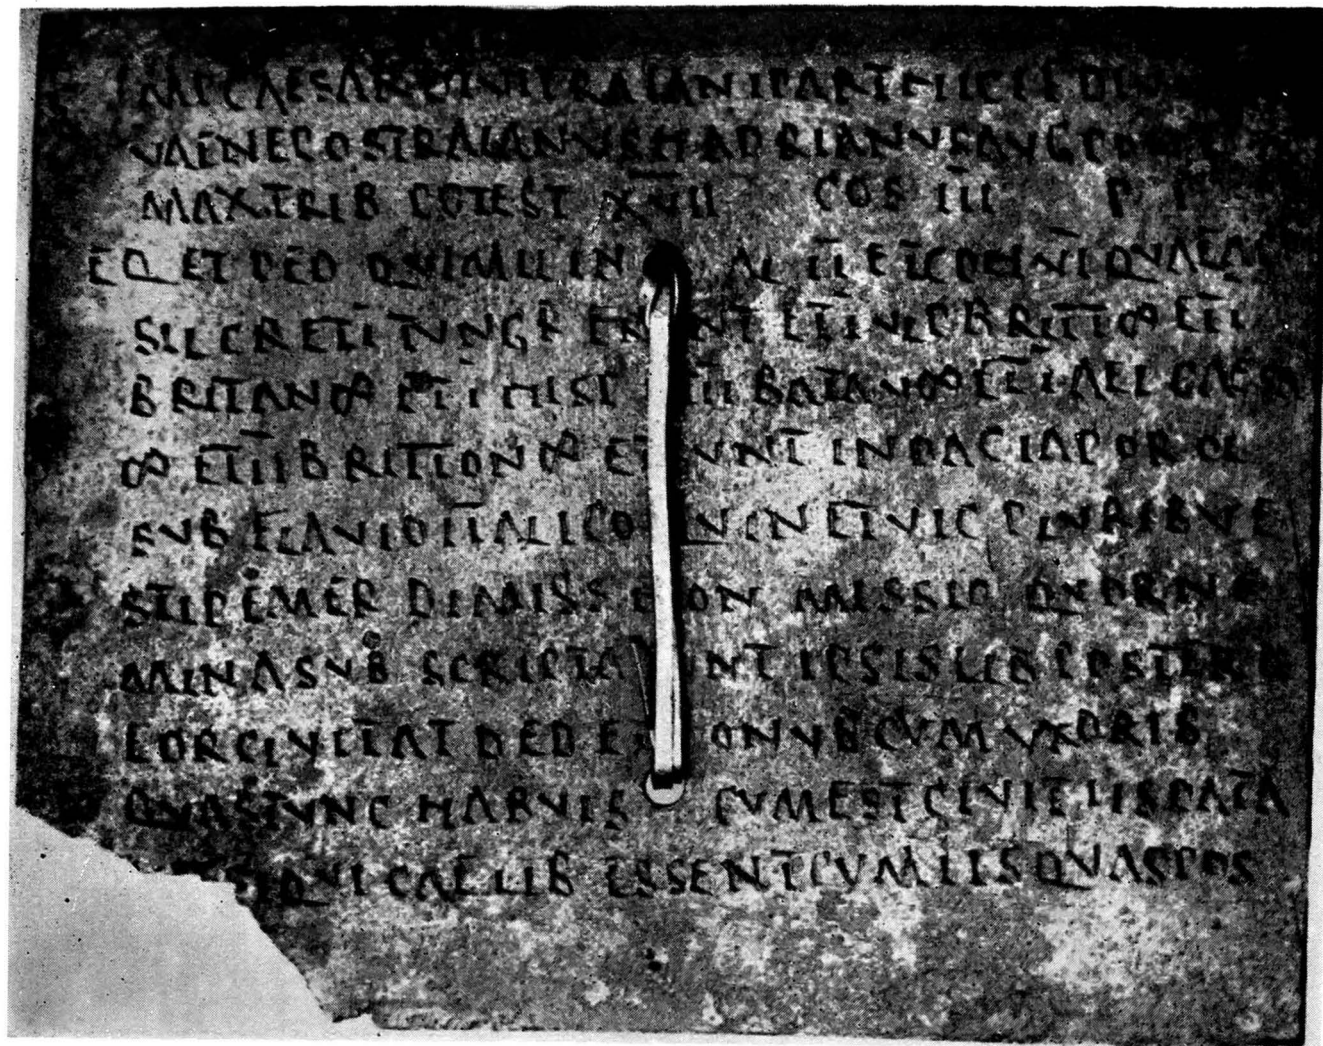 IMP CAESAR DIVI TRAIANI PARTHICI F DIVI
VAE NEPOS TRAIANVS HADRIANVS AVG PONT
MAX TRIB POTEST XVII COS III P P
EQ ET PED QVI MIL IN AL II ET COH VI QVAE AP
SIL C R ET I TVNGR NT ET I VLP BRITT ∞ ET I
BRITAN ∞ ET I HISP III BATAV ∞ ET I AEL GAES
∞ ET II BRITTON ∞ ET VNT IN DACIA POROL
SVB FLAVIO ITALICO QVIN ET VIC PLVRIBVE
STIP EMER DIMISS HON MISSIO QVOR NO
MINA SVB SCRIPTA VNT IPSIS LIB POSTERQ
EOR CIVITAT DED ET CONVB CVM VXORIB
QVAS TVNC HABVIS CVM EST CIVIT IIS DATA
SI QVI CAELIB ESSENT CVM IIS QVAS POS